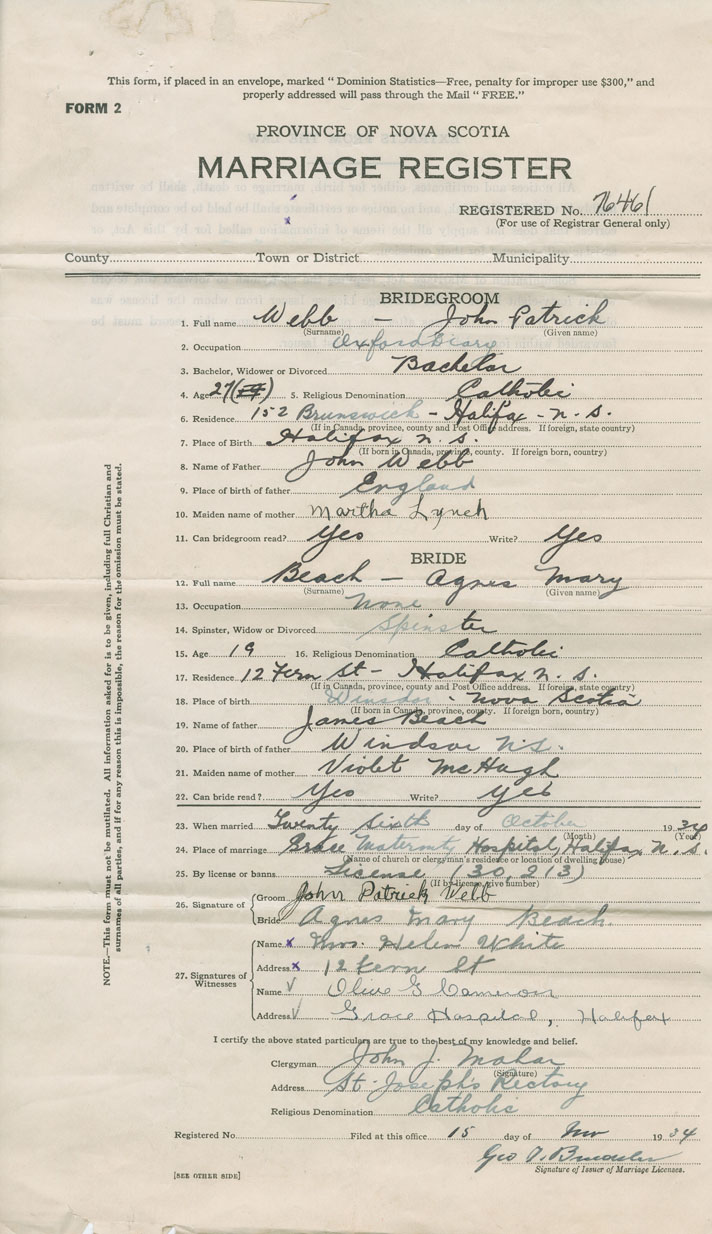 This form, if placed in an envelope, marked “Dominion Statistics—Free, penalty for improper use $300,” and
properly addressed will pass through the Mail “FREE.”
FORM 2
PROVINCE OF NOVA SCOTIA
MARRIAGE REGISTER
REGISTERED No. 76461
(For use of Registrar General only)
County Town or District Municipality
BRIDEGROOM
1. Full name Webb — John Patrick
(Surname) (Given name)
2. Occupation Oxford Diary
3. Bachelor, Widower or Divorced Bachelor
4. Age 27 5. Religious Denomination Catholic
6. Residence 152 Brunswick - Halifax - N. S.
(If in Canada, province, county and Post Office address. If foreign, state country)
7. Place of Birth Halifax N. S.
(If born in Canada, province, county. If foreign born, country)
8. Name of Father John Webb
9. Place of birth of father England
10. Maiden name of mother Martha Lynch
11. Can bridegroom read? Yes Write? Yes
BRIDE
12. Full name Beach — Agnes Mary
(Surname) (Given name)
13. Occupation None
14. Spinster, Widow or Divorced Spinster
15. Age 19 16. Religious Denomination Catholic
17. Residence 12 Fern St - Halifax N. S.
(If in Canada, province, county and Post Office address. If foreign, state country)
18. Place of birth Winsdor - Nova Scotia
(If born in Canada, province, county. If foreign born, country)
19. Name of father James Beach
20. Place of birth of father Windsor N.S.
21. Maiden name of mother Violet McHugh
22. Can bride read? Yes Write? Yes
23. When married Twenty Sixth day of October 1934
(Month) (Year)
24. Place of marriage Grace Maternity Hospital, Halifax, N. S.
(Name of church or clergyman's residence or location of dwelling house)
25. By license or banns License (30,213)
(If by license, give number)
26. Signature of
Groom John Patrick Webb
Bride Agnes Mary Beach.
27. Signatures of Witnesses
Name x Mrs. Helen White
Address x 12 Fern St
Name √ Olive G Cameron
Address √ Grace Hospital, Halifax
I certify the above stated particulars are true to the best of my knowledge and belief.
Clergyman John J. Mahar
(Signature)
Address St. Joseph's Rectory
Religious Denomination Catholic
Registered No. Filed at this office 15 day of Nov 1934
Geo
Signature of Issuer of Marriage Licenses.
[SEE OTHER SIDE]
NOTE.—This form must not be mutilated. All information asked for is to be given, including full Christian and
surnames of all parties, and if for any reason this is impossible, the reason for the omission must be stated.